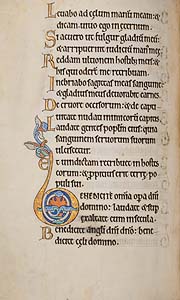 Levabo ad celum manum meam: &
dicam. uivo ego in eternum.
Si acuero ut fulgur gladium meum:
& arripuerit iudicium man' mea;
Reddam ultionem hostib; meis: &
his qui oderunt me retribuam.
Inebriabo sagittas meas sanguine:
& gladius meus devorabit carnes.
De cruore occisorum: & de capti
vitate nudati inimicorum capitis
Laudate gentes populum eius: quia
sanguinem servorum suorum
ulciscetur.
Et vindictam retribuet in hostes
eorum: & propitius erit terre po
puli sui.
Benedicite omnia opa dni
domino: laudate & sup
exaltate eum in secula.
Benedicite angli dni dno: bene
dicite celi domino.